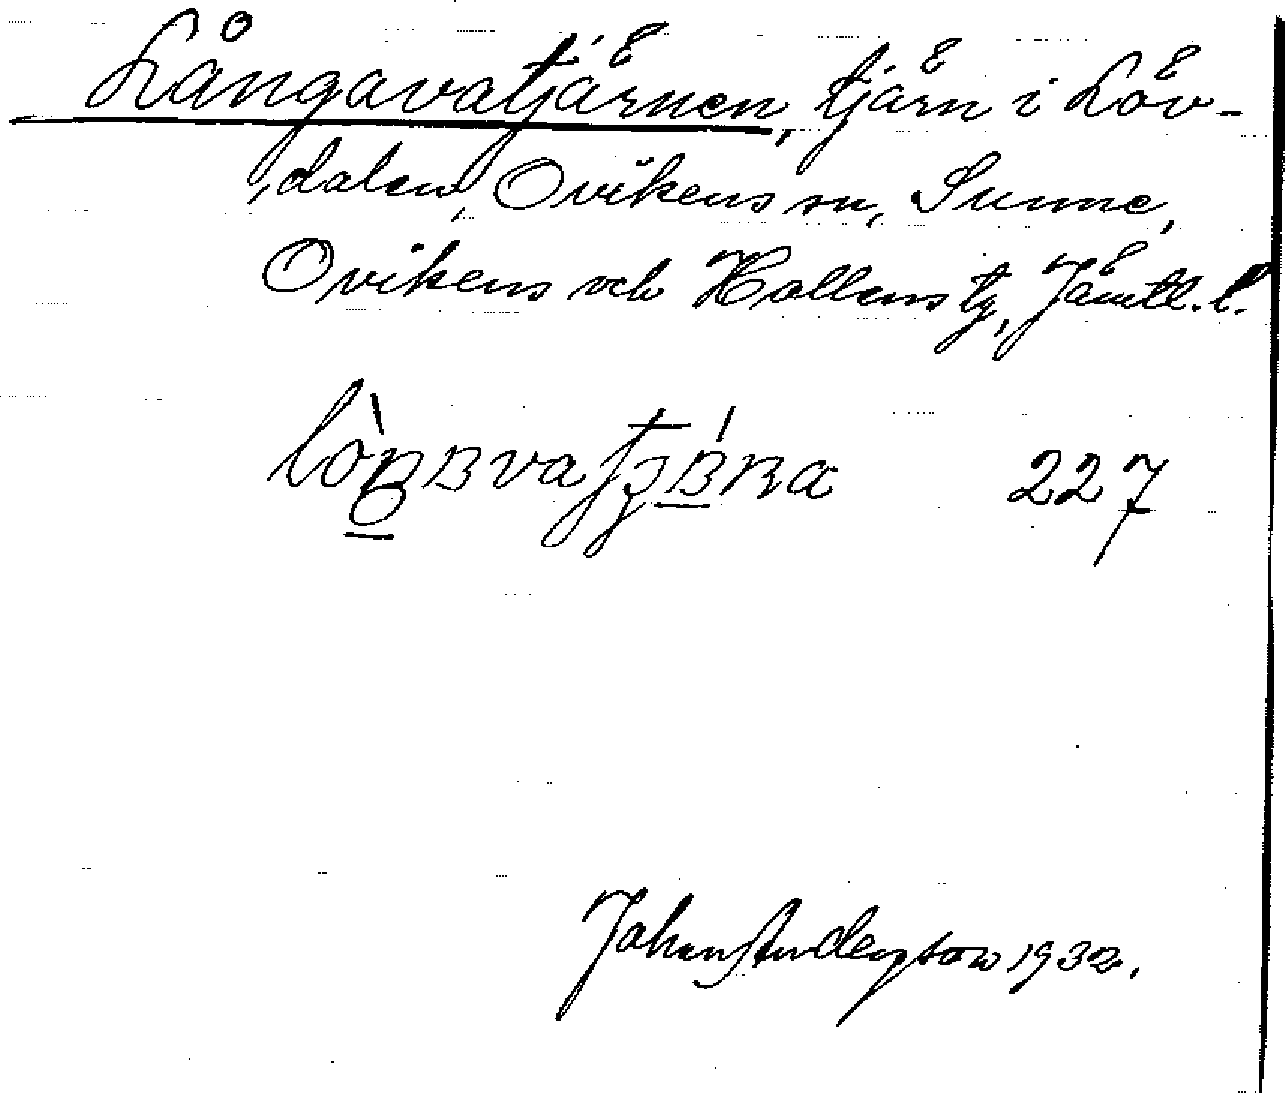 Långavatjärnen, tjärn i Löv-
dalen, Ovikens sn, Sunne,
Ovikens och Hallens tg, Jämtl. l.
227
Johan Anderzson 1932.